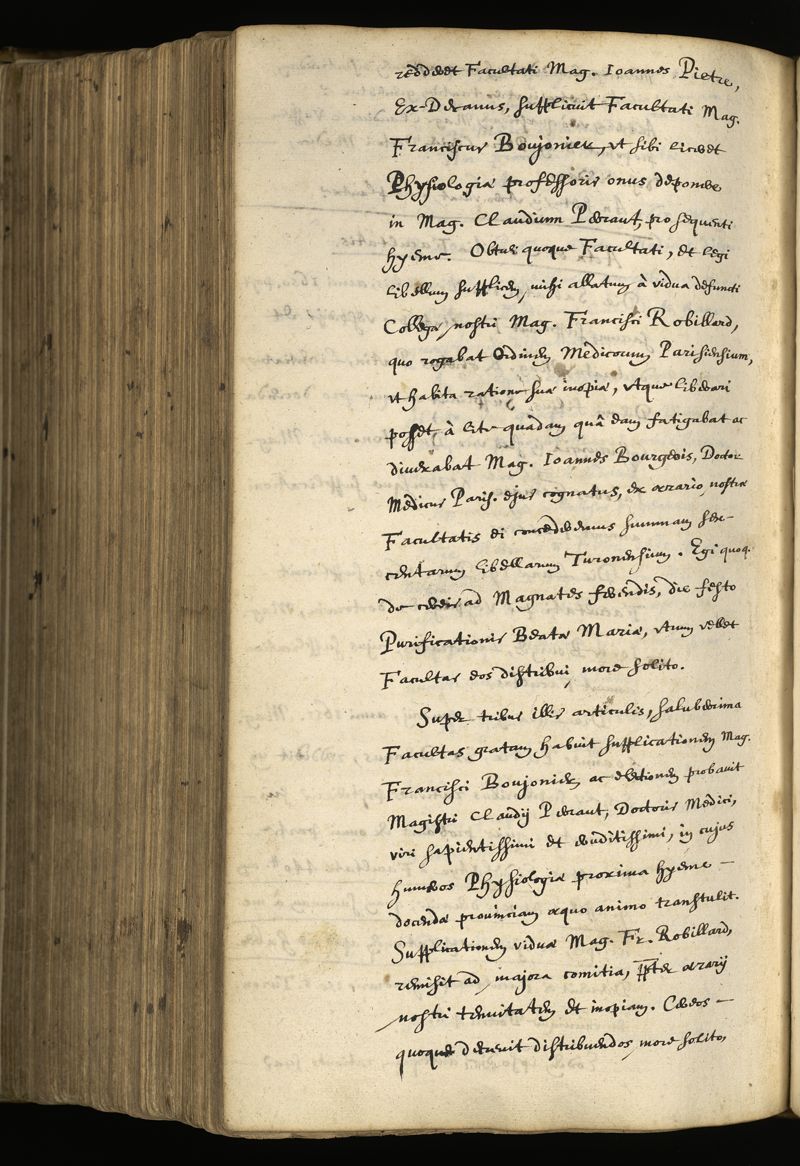 redderet Facultati Mag. Ioannes Pietre,
Ex-Decanus, supplicuit Facultati Mag.
Franciscus Boujonier, vt sibi liceret
Physiologiæ professoris onus deponere
in Mag. Claudium Perraut, pro sequenti
hyeme. Obtuli quoque Facultati, et legi
libellum supplicem, mihi allatum à vidua defuncti
Collegæ nostri Mag. Francisci Robillard,
quo rogabat Ordinem Medicorum Parisiensium,
vt habita ratione suæ inopiæ, vtque liberari
posset, à lite quâdam quâ eam fatigabat ac
divexabat Mag. Ioannes Bourgeois, Doctor
Medicus Paris. ejus cognatus, ex ærario nostræ
Facultatis ei concederemus summam sex-
centarum libellarum Turonensium. Egi quoq.
de cereis ad Magnates ferendis, die festo
Purificationis Beatæ Mariæ, vtrum vellet
Facultas eos distribui, more solito.
Super tribus illis articulis, saluberrima
Facultas gratam habuit supplicationem Mag.
Francisci Boujonier, ac electionem probavit
Magistri Claudij Perraut, Doctoris Medici,
viri sapientissimi et eruditissimi, in cujus
humeros Physiologiæ proxima hyeme —
docendæ provinciam æquo animo transtulit.
Supplicationem viduæ Mag. Fr. Robillard,
remisit ad majora comitia, ppter ærarij
nostri tenuitatem et inopiam. Cereos —
quoque decrevit distribuendos, more solito,